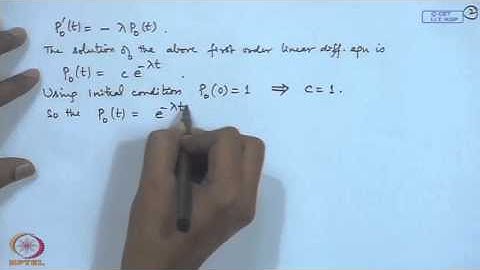 © CET
I.I.T. KGP
2
P₀'(t) = − λ P₀(t).
The solution of the above first order linear diff. eqn is
P₀(t) = c e^{−λt}.
Using initial condition P₀(0) = 1 ⇒ c = 1.
So the P₀(t) = e^{−λt}
NPTEL